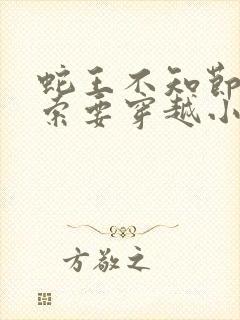 蛇王不知节
索要穿越小
方敬之